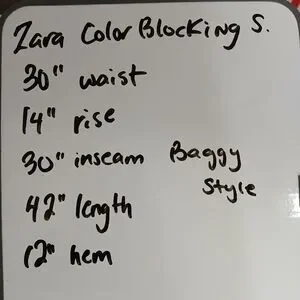 Zara Color Blocking S.
30" waist
14" rise
30" inseam Baggy
Style
42" length
12" hem